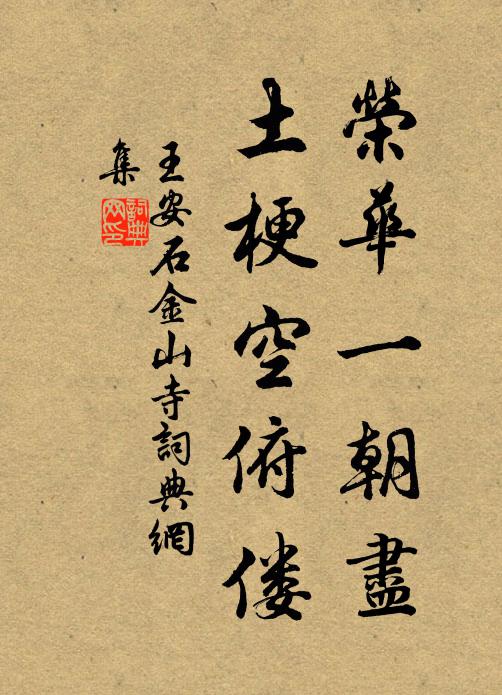 榮華一朝盡
土梗空俯僂
王安石金山寺詞典網
集
詞典
網印